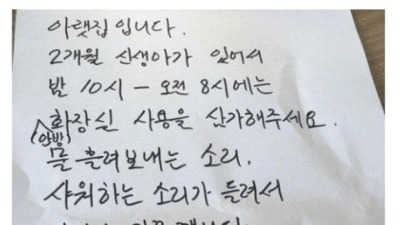 아랫집입니다.
2개월 신생아가 있어서
밤 10시 - 오전 8시에는
(안방) 화장실 사용을 삼가해주세요.
물 흘려보내는 소리.
샤워하는 소리가 들려서